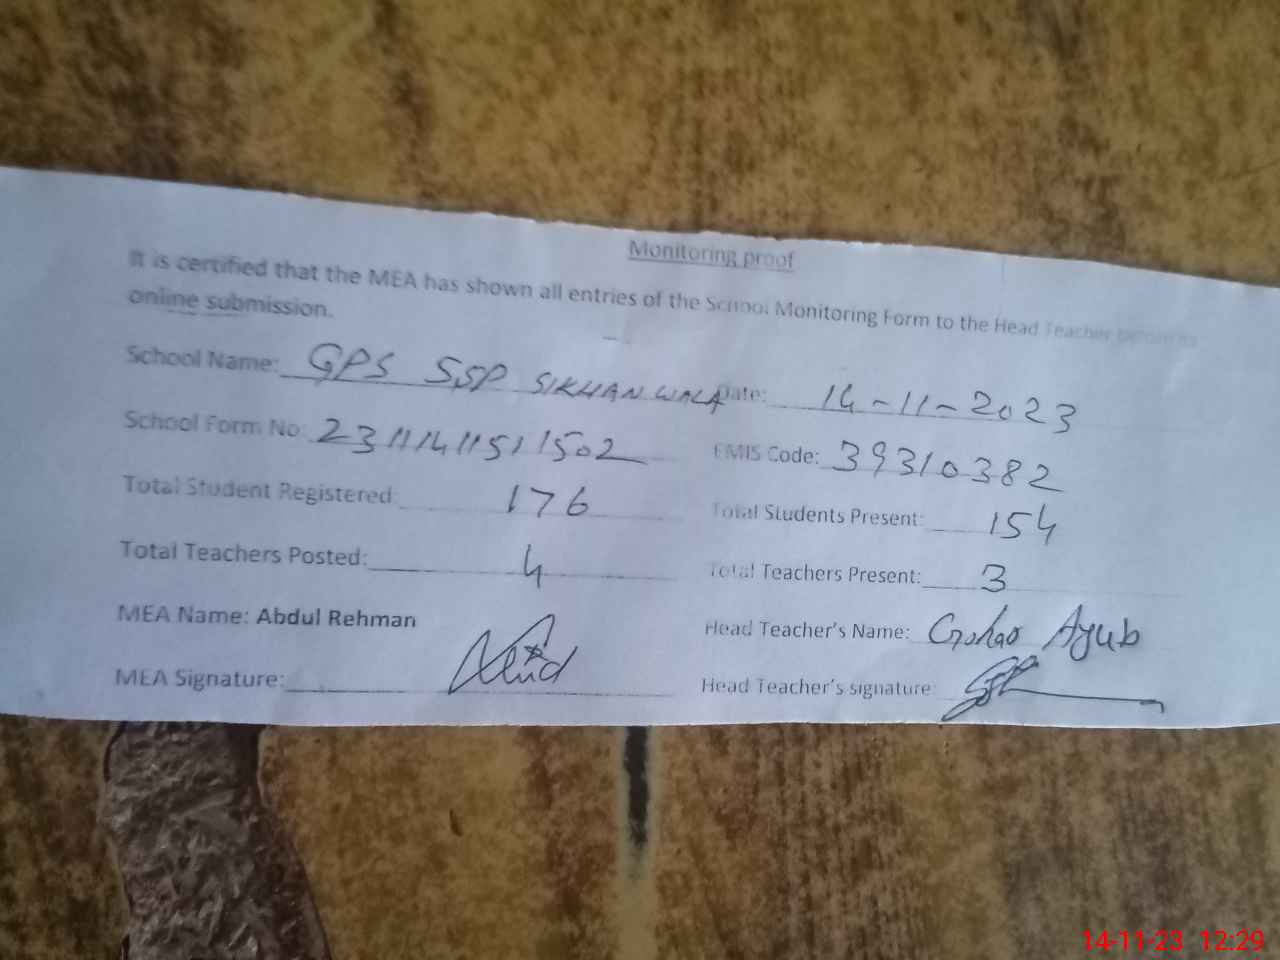 Monitoring proof
It is certified that the MEA has shown all entries of the School Monitoring Form to the Head Teacher
online submission.
School Name: GPS SSP SIKHANWALA Date: 14-11-2023
School Form No: EMIS Code: 39310382
Total Student Registered: 176 Total Students Present: 154
Total Teachers Posted: 4 Total Teachers Present: 3
MEA Name: Abdul Rehman Head Teacher's Name: Ayub
MEA Signature: Head Teacher's signature:
14-11-23 12:29